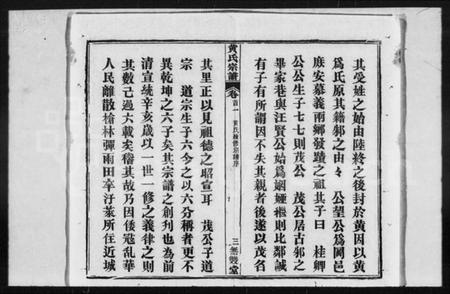 其受姓之始由陸終之後封於黃因以黃
爲氏原其籍鄣之由々　公望公爲岡邑
庶安慕義兩鄉發蹟之祖其子曰　桂卿
公公生子七七則茂公　茂公居古鄣之
畢家巷與汪賢公始爲姻婭繼則比鄰誠
有子有所謂因不失其親者後遂以茂名
黃氏宗譜
卷首一
黃氏續修宗譜序
三無雙堂
其里正以見祖德之昭宣耳　茂公子道
宗　道宗生子六今之以六分稱者更不
異乾坤之六子矣其宗譜之創刋也爲前
清宣統辛亥歲以一世一修之義律之則
其數已過大載矣稽其故乃因倭寇亂華
人民離散榆林彈雨田卒汙萊所住近城